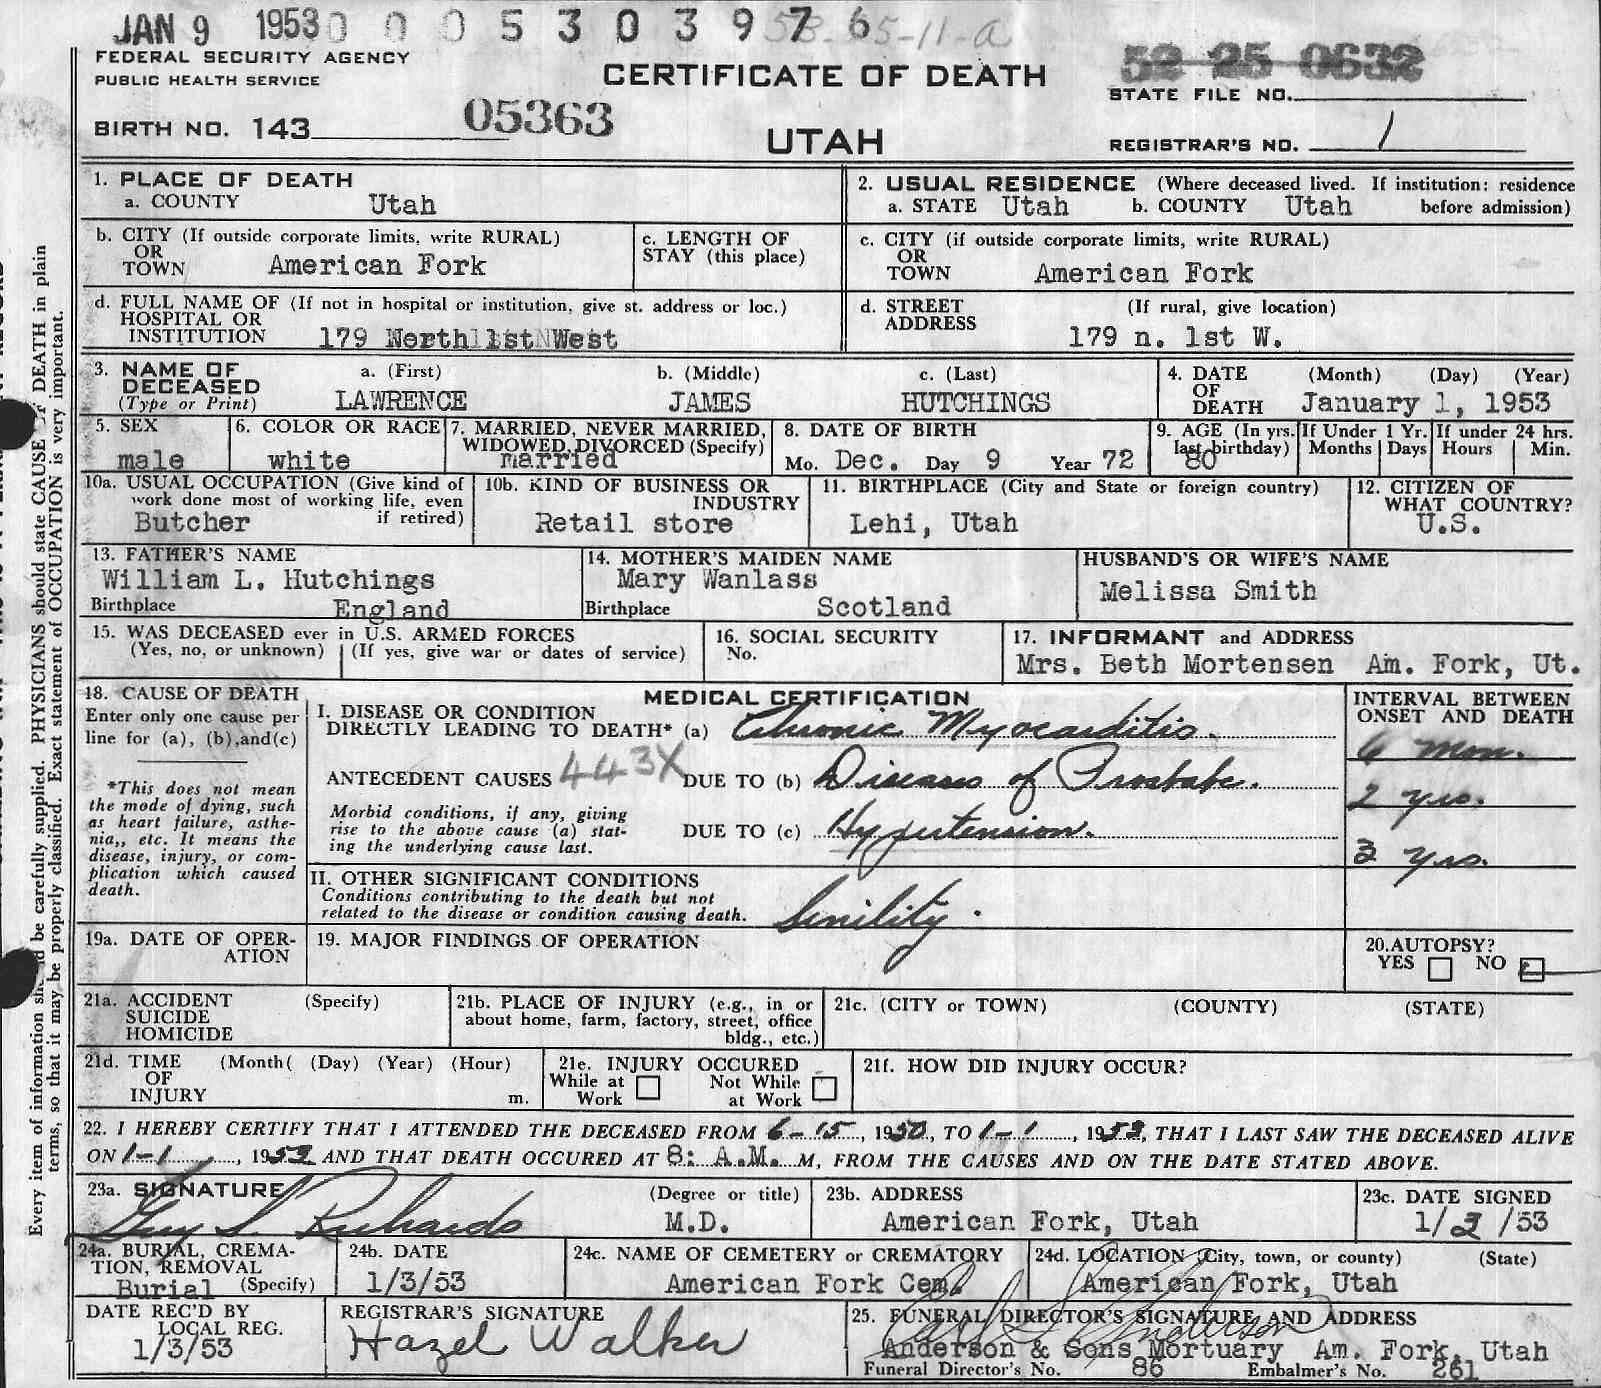 JAN 9 1953 0 0 0 5 3 0 3 9 7 6
FEDERAL SECURITY AGENCY
PUBLIC HEALTH SERVICE
CERTIFICATE OF DEATH
52 25 0632
STATE FILE NO.
BIRTH NO. 143 05363
UTAH
REGISTRAR'S NO. 1
1. PLACE OF DEATH
a. COUNTY Utah
2. USUAL RESIDENCE (Where deceased lived. If institution: residence before admission)
a. STATE Utah b. COUNTY Utah
b. CITY (If outside corporate limits, write RURAL)
OR
TOWN American Fork
c. LENGTH OF
STAY (this place)
c. CITY (if outside corporate limits, write RURAL)
OR
TOWN American Fork
d. FULL NAME OF (If not in hospital or institution, give st. address or loc.)
HOSPITAL OR
INSTITUTION 179 North 1st West
d. STREET (If rural, give location)
ADDRESS 179 n. 1st W.
3. NAME OF DECEASED
(Type or Print)
a. (First) b. (Middle) c. (Last)
LAWRENCE JAMES HUTCHINGS
4. DATE OF DEATH (Month) (Day) (Year)
January 1, 1953
5. SEX
male
6. COLOR OR RACE
white
7. MARRIED, NEVER MARRIED,
WIDOWED, DIVORCED (Specify)
married
8. DATE OF BIRTH
Mo. Dec. Day 9 Year 72
9. AGE (In yrs. last birthday)
80
If Under 1 Yr.
Months Days
If under 24 hrs.
Hours Min.
10a. USUAL OCCUPATION (Give kind of
work done most of working life, even
if retired)
Butcher
10b. KIND OF BUSINESS OR
INDUSTRY
Retail store
11. BIRTHPLACE (City and State or foreign country)
Lehi, Utah
12. CITIZEN OF
WHAT COUNTRY?
U.S.
13. FATHER'S NAME
William L. Hutchings
Birthplace England
14. MOTHER'S MAIDEN NAME
Mary Wanlass
Birthplace Scotland
HUSBAND'S OR WIFE'S NAME
Melissa Smith
15. WAS DECEASED ever in U.S. ARMED FORCES
(Yes, no, or unknown) (If yes, give war or dates of service)
16. SOCIAL SECURITY
No.
17. INFORMANT and ADDRESS
Mrs. Beth Mortensen Am. Fork, Ut.
18. CAUSE OF DEATH
Enter only one cause per
line for (a), (b),and(c)
*This does not mean
the mode of dying, such
as heart failure, asthe-
nia,, etc. It means the
disease, injury, or com-
plication which caused
death.
MEDICAL CERTIFICATION
I. DISEASE OR CONDITION
DIRECTLY LEADING TO DEATH* (a) Chronic Myocarditis.
ANTECEDENT CAUSES 443X DUE TO (b) Diseases of Prostate.
Morbid conditions, if any, giving
rise to the above cause (a) stat-
ing the underlying cause last.
DUE TO (c) Hypertension.
INTERVAL BETWEEN
ONSET AND DEATH
6 mon.
2 yrs.
3 yrs.
II. OTHER SIGNIFICANT CONDITIONS
Conditions contributing to the death but not
related to the disease or condition causing death.
Senility.
19a. DATE OF OPER-
ATION
19. MAJOR FINDINGS OF OPERATION
20.AUTOPSY?
YES NO
21a. ACCIDENT (Specify)
SUICIDE
HOMICIDE
21b. PLACE OF INJURY (e.g., in or
about home, farm, factory, street, office
bldg., etc.)
21c. (CITY or TOWN) (COUNTY) (STATE)
21d. TIME (Month( (Day) (Year) (Hour)
OF
INJURY m.
21e. INJURY OCCURED
While at Work Not While at Work
21f. HOW DID INJURY OCCUR?
22. I HEREBY CERTIFY THAT I ATTENDED THE DECEASED FROM 6-15, 1950, TO 1-1, 1953, THAT I LAST SAW THE DECEASED ALIVE
ON 1-1, 1953 AND THAT DEATH OCCURED AT 8: A.M. M, FROM THE CAUSES AND ON THE DATE STATED ABOVE.
23a. SIGNATURE (Degree or title)
Guy S. Richards M.D.
23b. ADDRESS
American Fork, Utah
23c. DATE SIGNED
1/2/53
24a. BURIAL, CREMA-
TION, REMOVAL
Burial (Specify)
24b. DATE
1/3/53
24c. NAME OF CEMETERY or CREMATORY
American Fork Cem.
24d. LOCATION (City, town, or county) (State)
American Fork, Utah
DATE REC'D BY
LOCAL REG.
1/3/53
REGISTRAR'S SIGNATURE
Hazel Walker
25. FUNERAL DIRECTOR'S SIGNATURE AND ADDRESS
Anderson & Sons Mortuary Am. Fork, Utah
Funeral Director's No. 86 Embalmer's No. 261
Every item of information should be carefully supplied. PHYSICIANS should state CAUSE OF DEATH in plain
terms, so that it may be properly classified. Exact statement of OCCUPATION is very important.